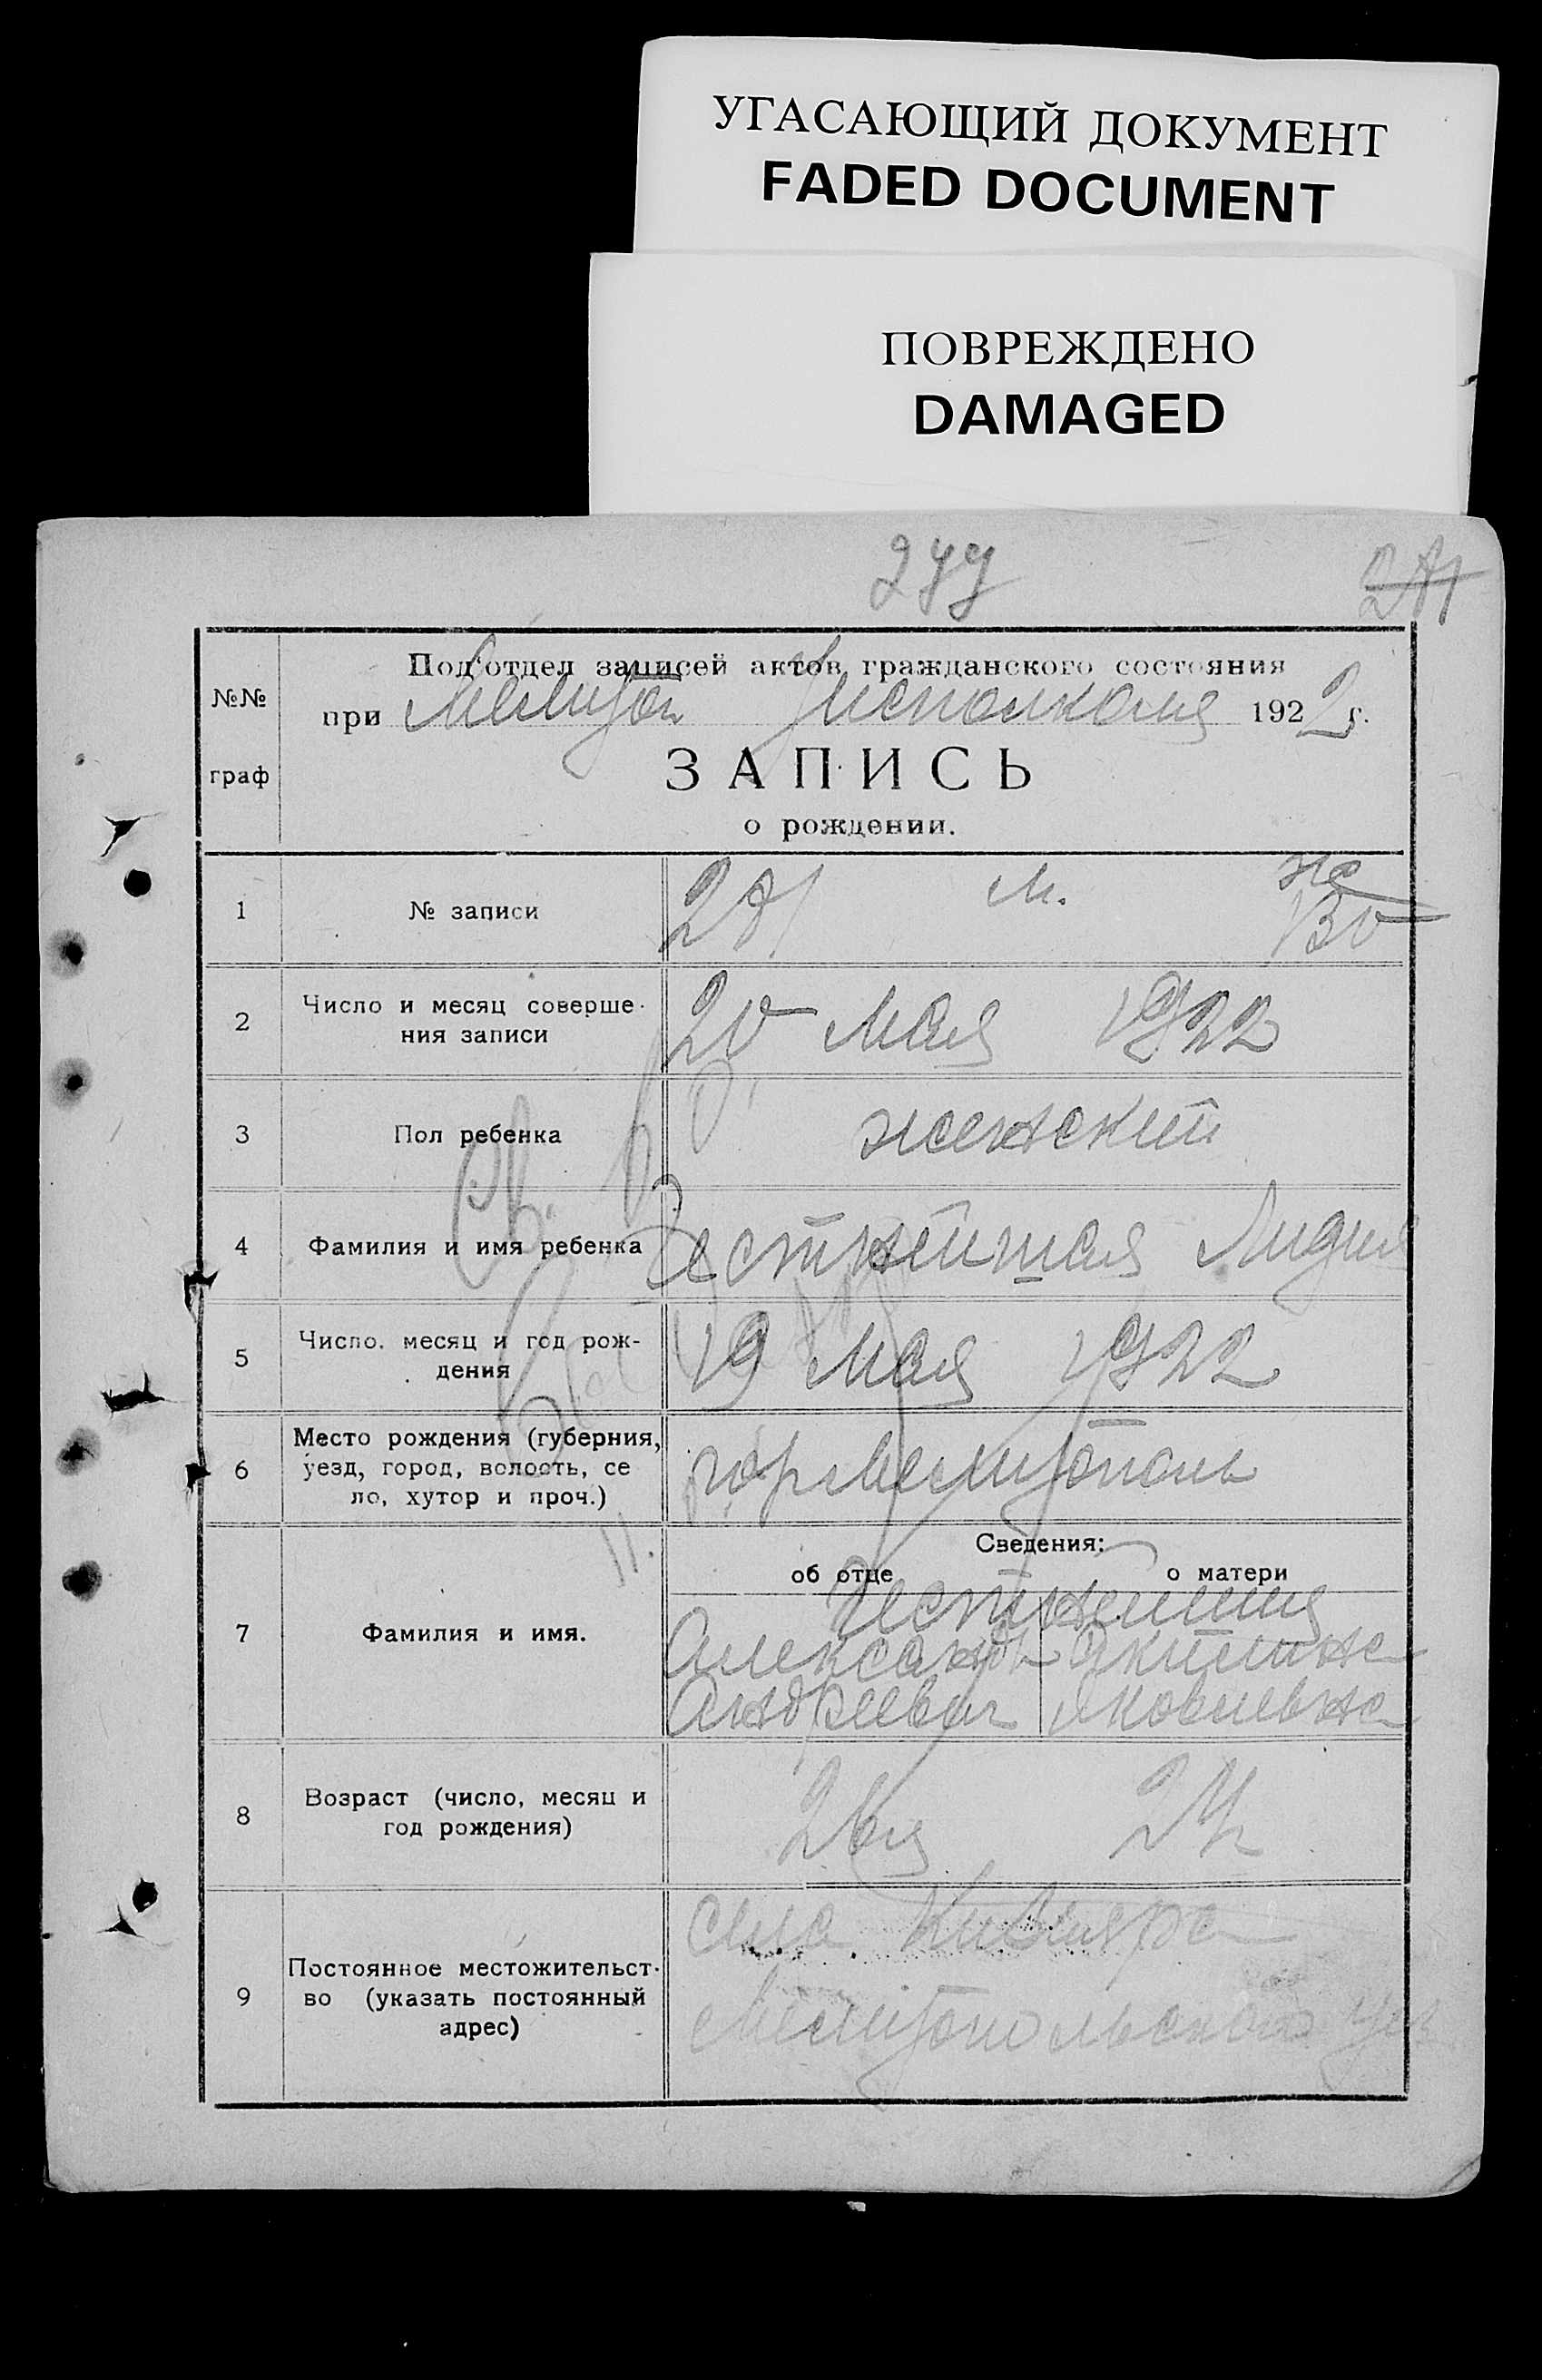 УГАСАЮЩИЙ ДОКУМЕНТ
FADED DOCUMENT
ПОВРЕЖДЕНО
DAMAGED
№№
граф
Подотдел записей актов гражданского состояния
при Мелитоп Уисполкома 1922 г.
ЗАПИСЬ
о рождении.
1 № записи м.
2 Число и месяц соверше-
ния записи
20 мая 1922
3 Пол ребенка женский
4 Фамилия и имя ребенка Лидия
5 Число. месяц и год рож-
дения
19 мая 1922
6 Место рождения (губерния,
уезд, город, волость, се
ло, хутор и проч.)
гор Мелитополь
Сведения:
об отце о матери
7 Фамилия и имя.
Александр Акилина
Андреевич Яковлевна
8 Возраст (число, месяц и
год рождения)
9 Постоянное местожительст-
во (указать постоянный
адрес)
Мелитопольского уез